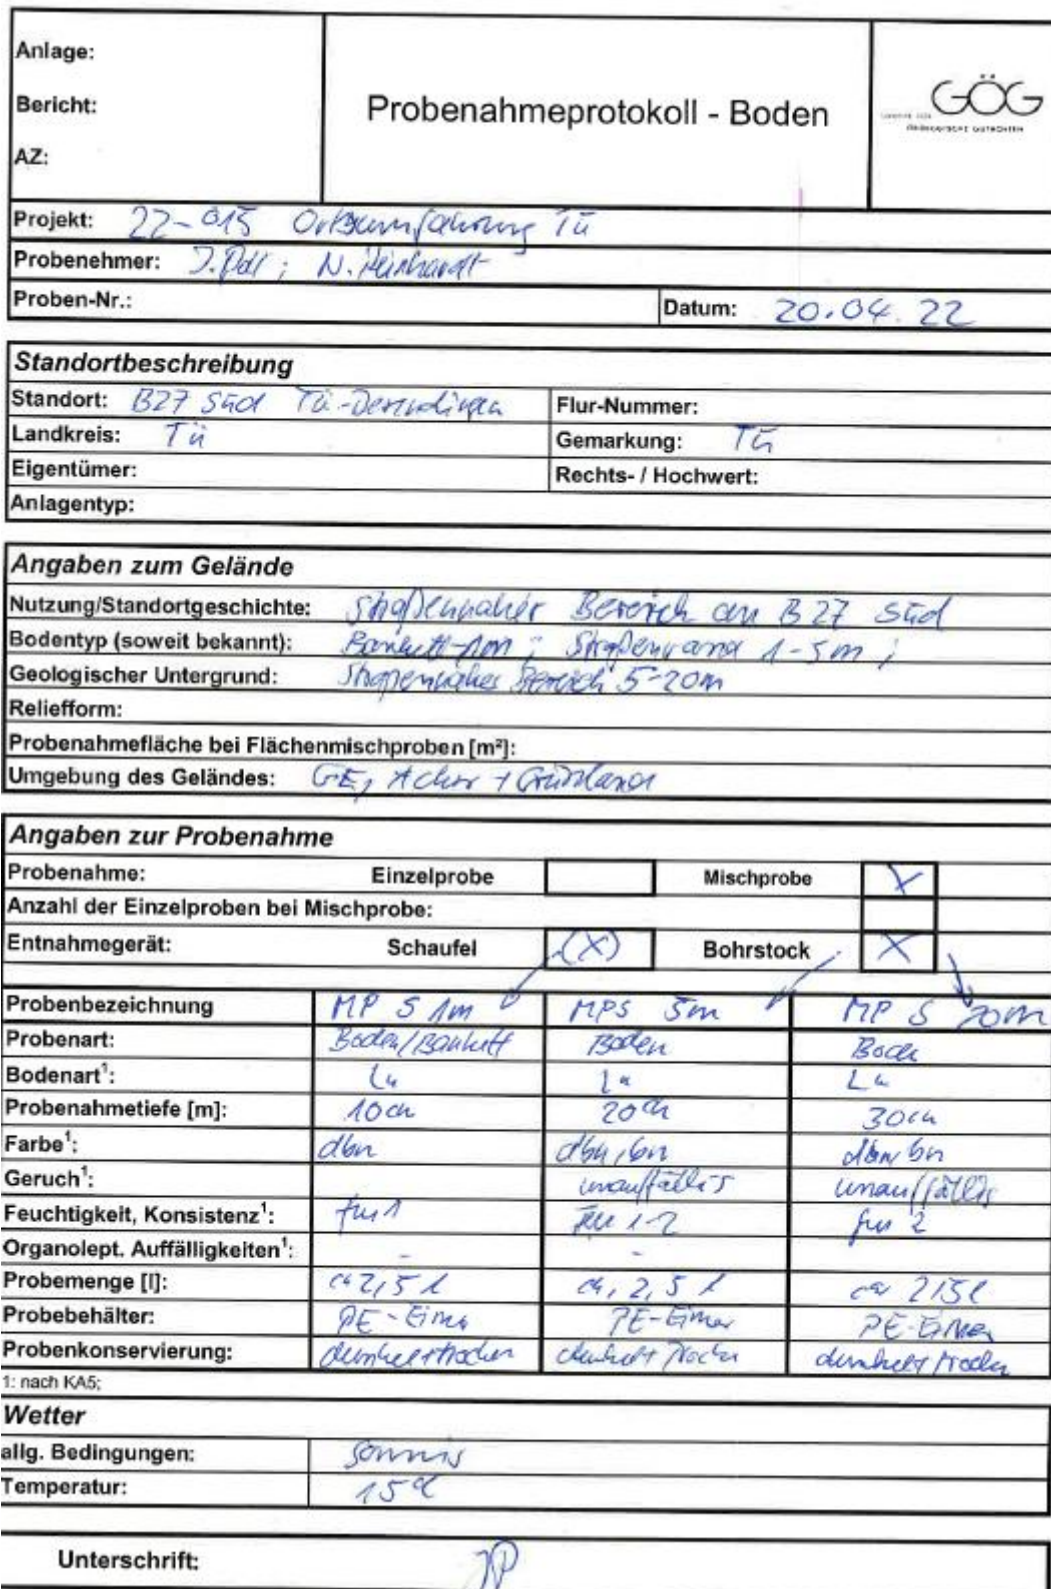 Anlage:
Bericht:
AZ:
Probenahmeprotokoll - Boden
GÖG
Projekt: 22-015 Ortsumfahrung Tü
Probenehmer: N. Reinhardt
Proben-Nr.:
Datum: 20.04.22
Standortbeschreibung
Standort: B27 Süd Tü-Derendingen
Flur-Nummer:
Landkreis: Tü
Gemarkung: Tü
Eigentümer:
Rechts- / Hochwert:
Anlagentyp:
Angaben zum Gelände
Nutzung/Standortgeschichte: Straßennaher Bereich an B27 Süd
Bodentyp (soweit bekannt): Bankett-1m ; Straßenrand 1-5m ;
Geologischer Untergrund: Straßennaher Bereich 5-20m
Reliefform:
Probenahmefläche bei Flächenmischproben [m²]:
Umgebung des Geländes: GE, Acker + Grünland
Angaben zur Probenahme
Probenahme: Einzelprobe Mischprobe X
Anzahl der Einzelproben bei Mischprobe:
Entnahmegerät: Schaufel (X) Bohrstock X
Probenbezeichnung MP S 1m MPS 5m MP S 20m
Probenart: Boden/Bankett Boden Boden
Bodenart¹: Lu Lu Lu
Probenahmetiefe [m]: 10cm 20cm 30cm
Farbe¹: dbn dbn, bn dbn, bn
Geruch¹: unauffällig unauffällig
Feuchtigkeit, Konsistenz¹: feu 1 feu 1-2 feu 2
Organolept. Auffälligkeiten¹: - -
Probemenge [l]: ca 2,5 l ca, 2,5 l ca 2,5 l
Probebehälter: PE-Eimer PE-Eimer PE-Eimer
Probenkonservierung: dunkel+trocken dunkel+trocken dunkel+trocken
1: nach KA5;
Wetter
allg. Bedingungen: sonnig
Temperatur: 15°C
Unterschrift: JP